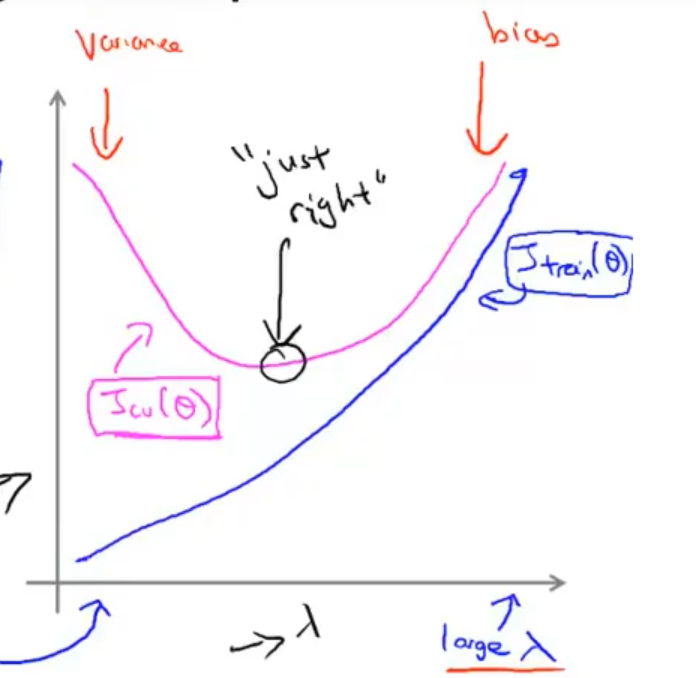 Variance
bias
"just
right"
J train(θ)
J cv(θ)
→ λ
large λ